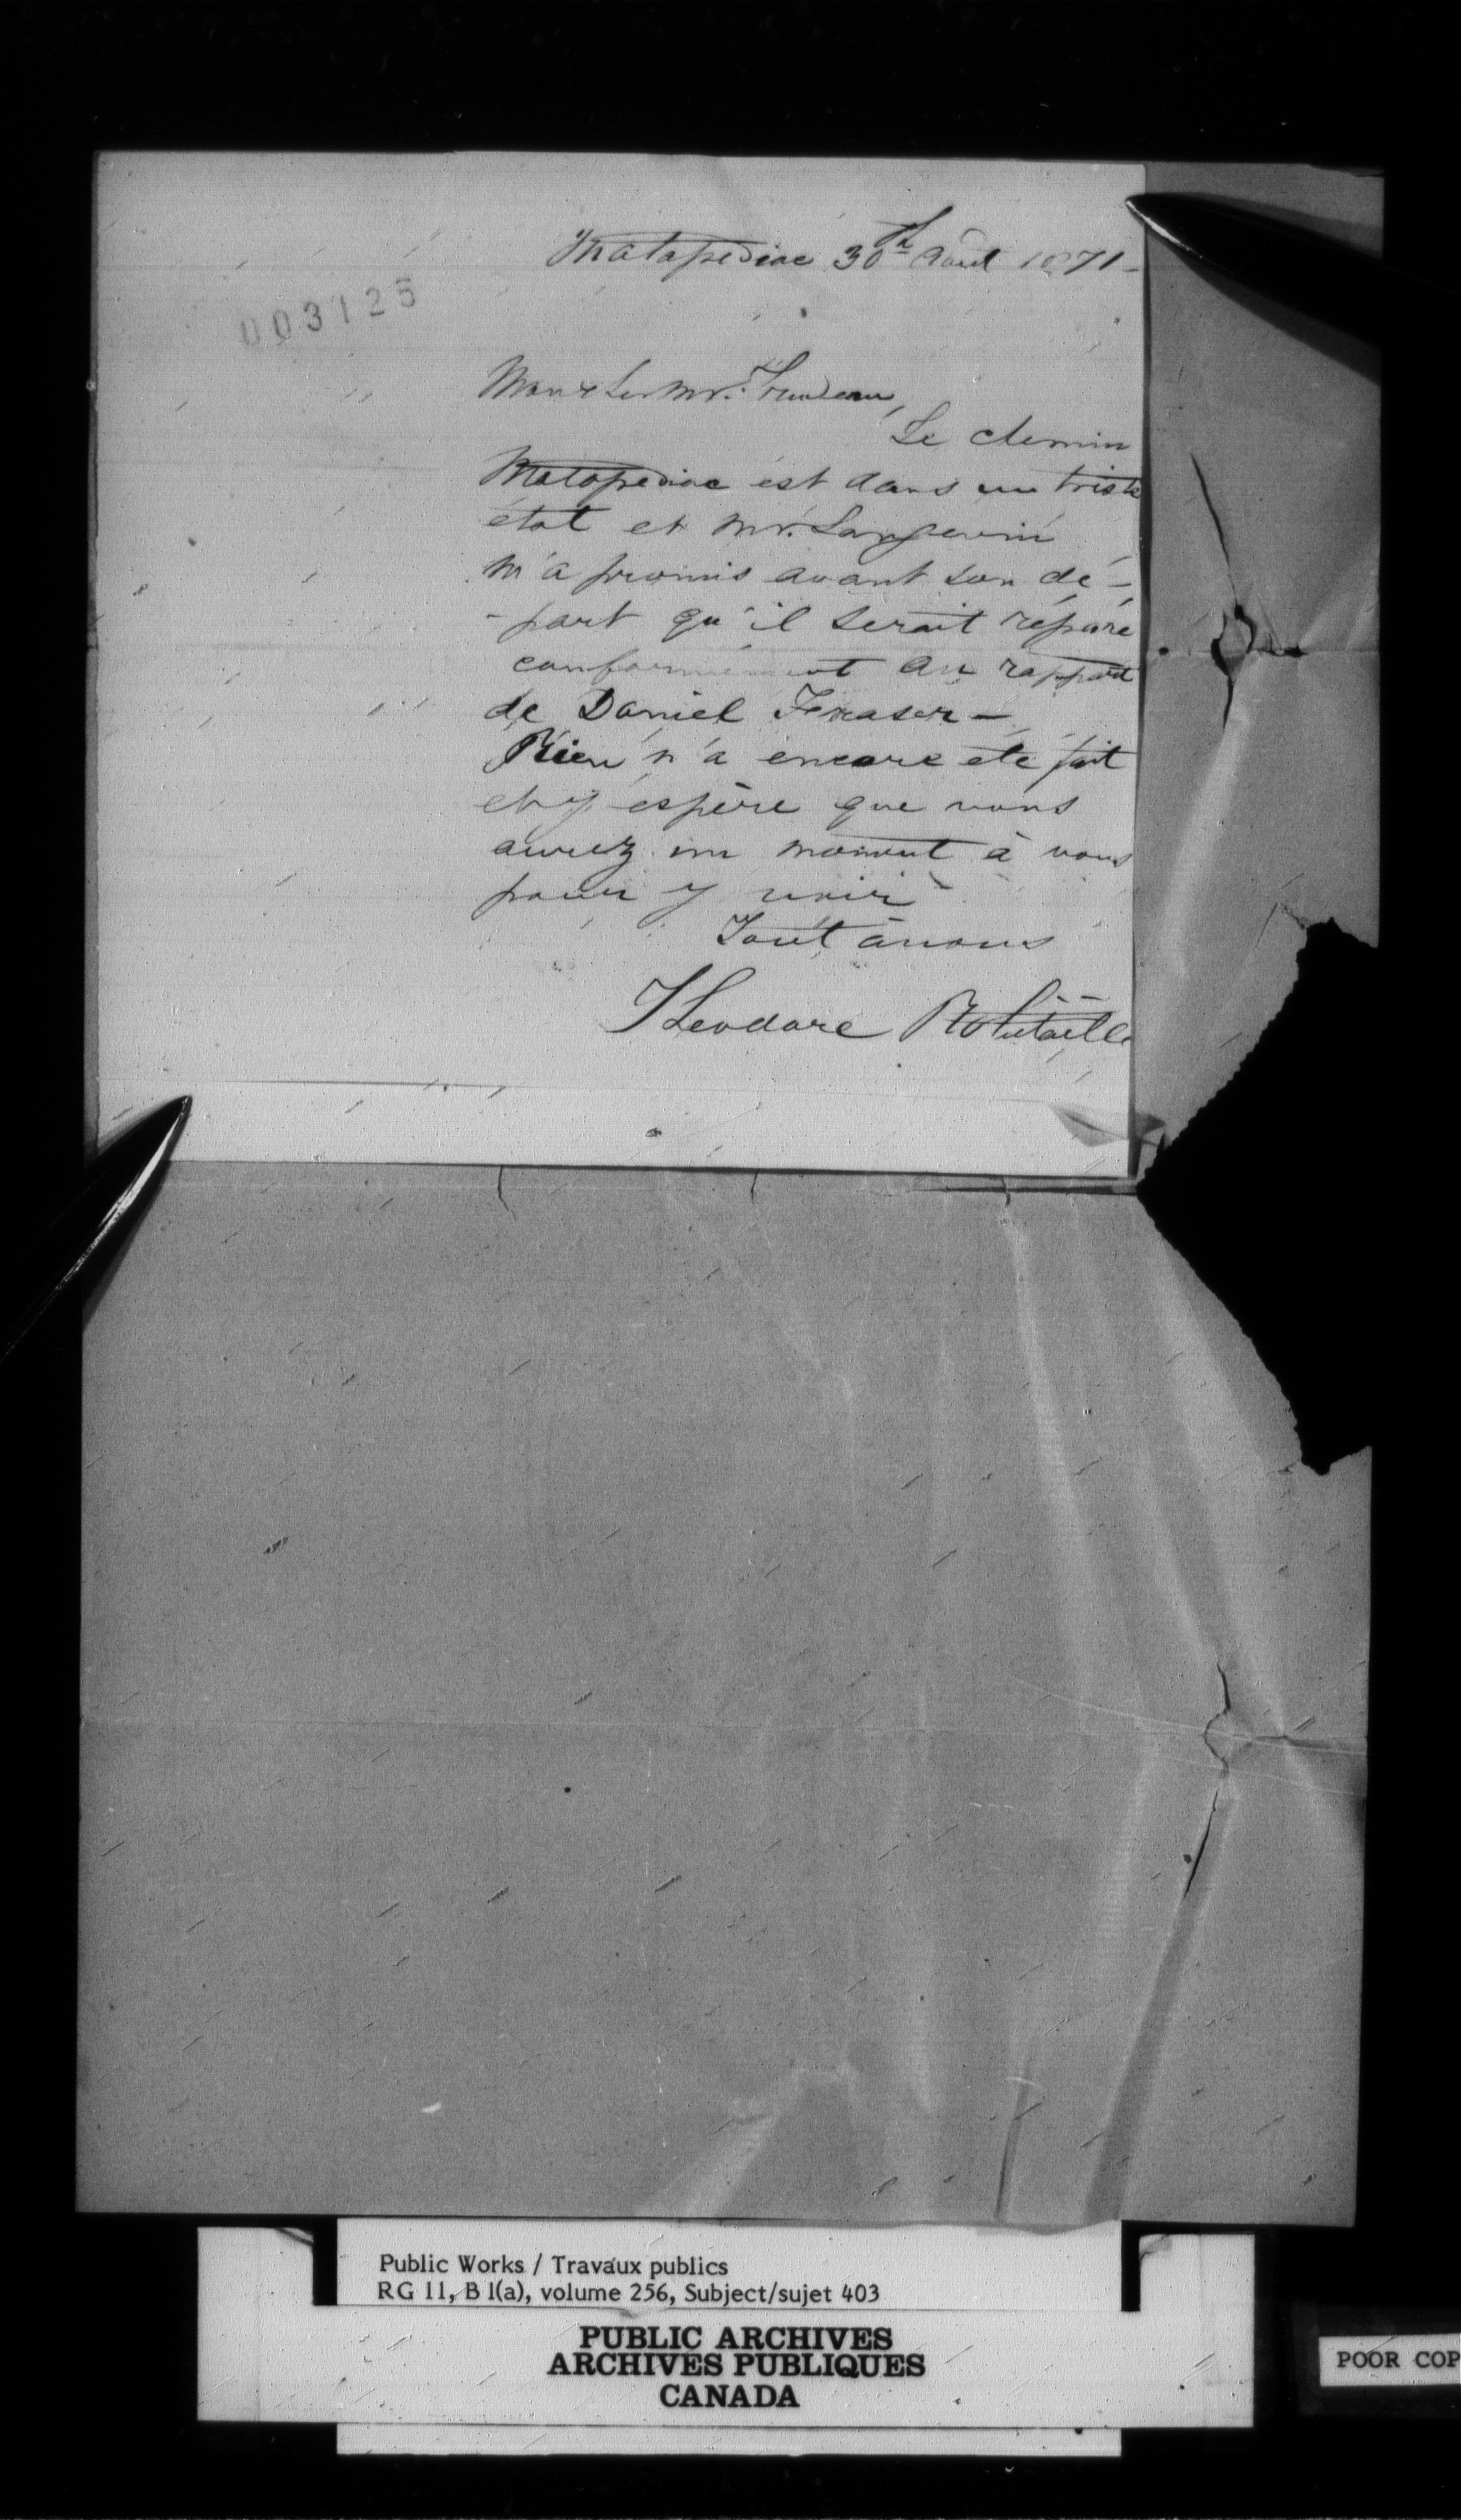 Matapediac 30th Août 1871 -
003125
Mon cher Mr. Trudeau,
Le chemin
Matapediac est dans un triste
état et Mr. Langevin
m'a promis avant son dé-
-part qu'il serait réparé
conformément au rapport
de Daniel Fraser -
Rien n'a encore été fait
et j'espère que vous
aurez un moment à vous
pour y voir
Tout à vous
Theodore Robitaille
Public Works / Travaux publics
RG 11, B 1(a), volume 256, Subject/sujet 403
PUBLIC ARCHIVES
ARCHIVES PUBLIQUES
CANADA
POOR COP